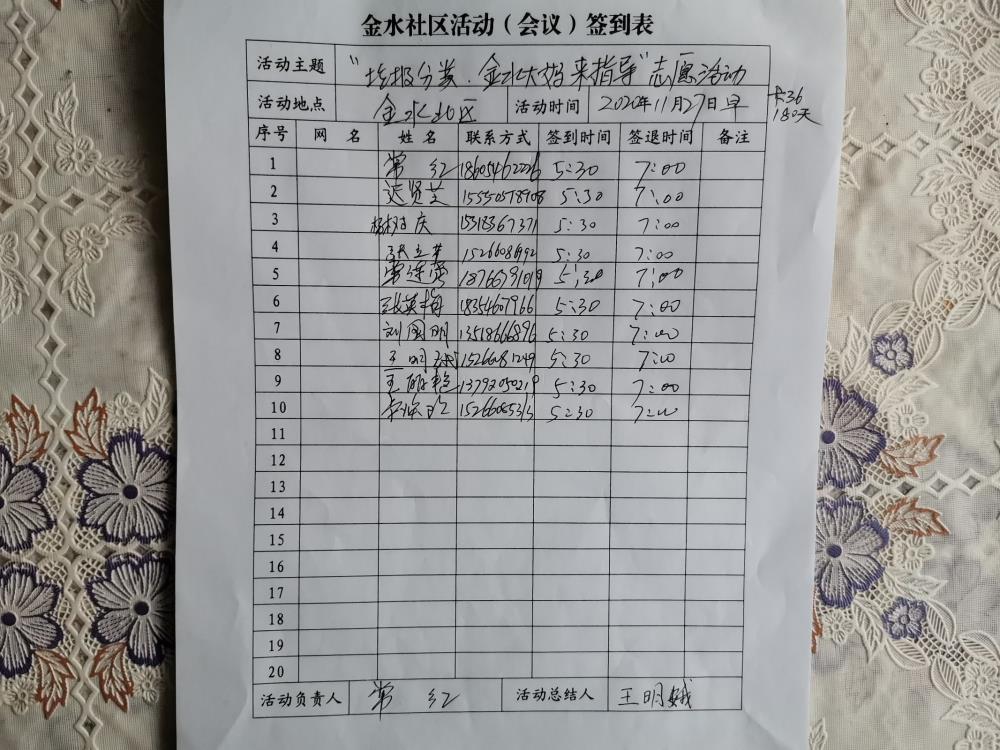 金水社区活动（会议）签到表
活动主题 "垃圾分类.金水大妈来指导"志愿活动
活动地点 金水北区 活动时间 2020年11月27日早
180天
序号 网 名 姓 名 联系方式 签到时间 签退时间 备注
1 常 红 5:30 7:00
2 15550578908 5:30 7:00
3 杨树庆 15318367371 5:30 7:00
4 5:30 7:00
5 5:30 7:00
6 张英梅 18354607966 5:30 7:00
7 刘国明 13518666896 5:30 7:00
8 15266081249 5:30 7:00
9 王丽艳 13792050219 5:30 7:00
10 15266085313 5:30 7:00
11
12
13
14
15
16
17
18
19
20
活动负责人 常 红 活动总结人 王明娥